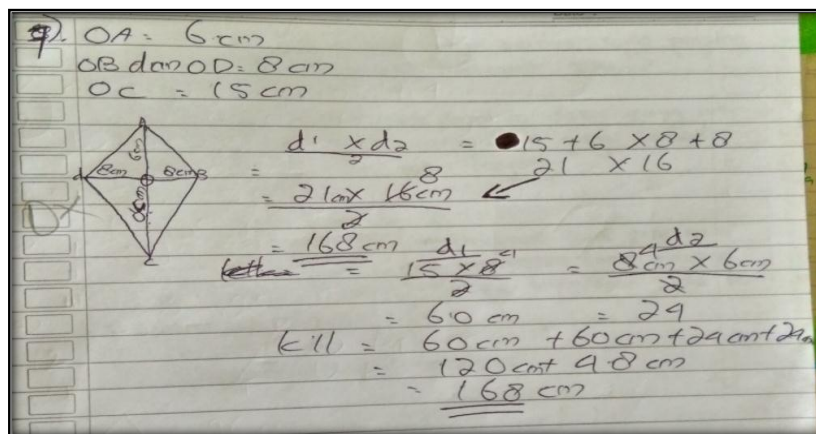 9). OA = 6 cm
OB dan OD = 8 cm
OC = 15 cm
A
6cm
d 8cm 8cm B
C
d1 x d2 / 2 = 15 + 6 x 8 + 8
21 x 16
= 21cm x 16cm 8 / 2
= 168 cm
d1
= 15 x 8 4 / 2
d2
= 8 4 cm x 6cm / 2
= 60 cm = 24
kll = 60cm + 60cm + 24cm + 24cm
= 120cm + 48 cm
= 168 cm